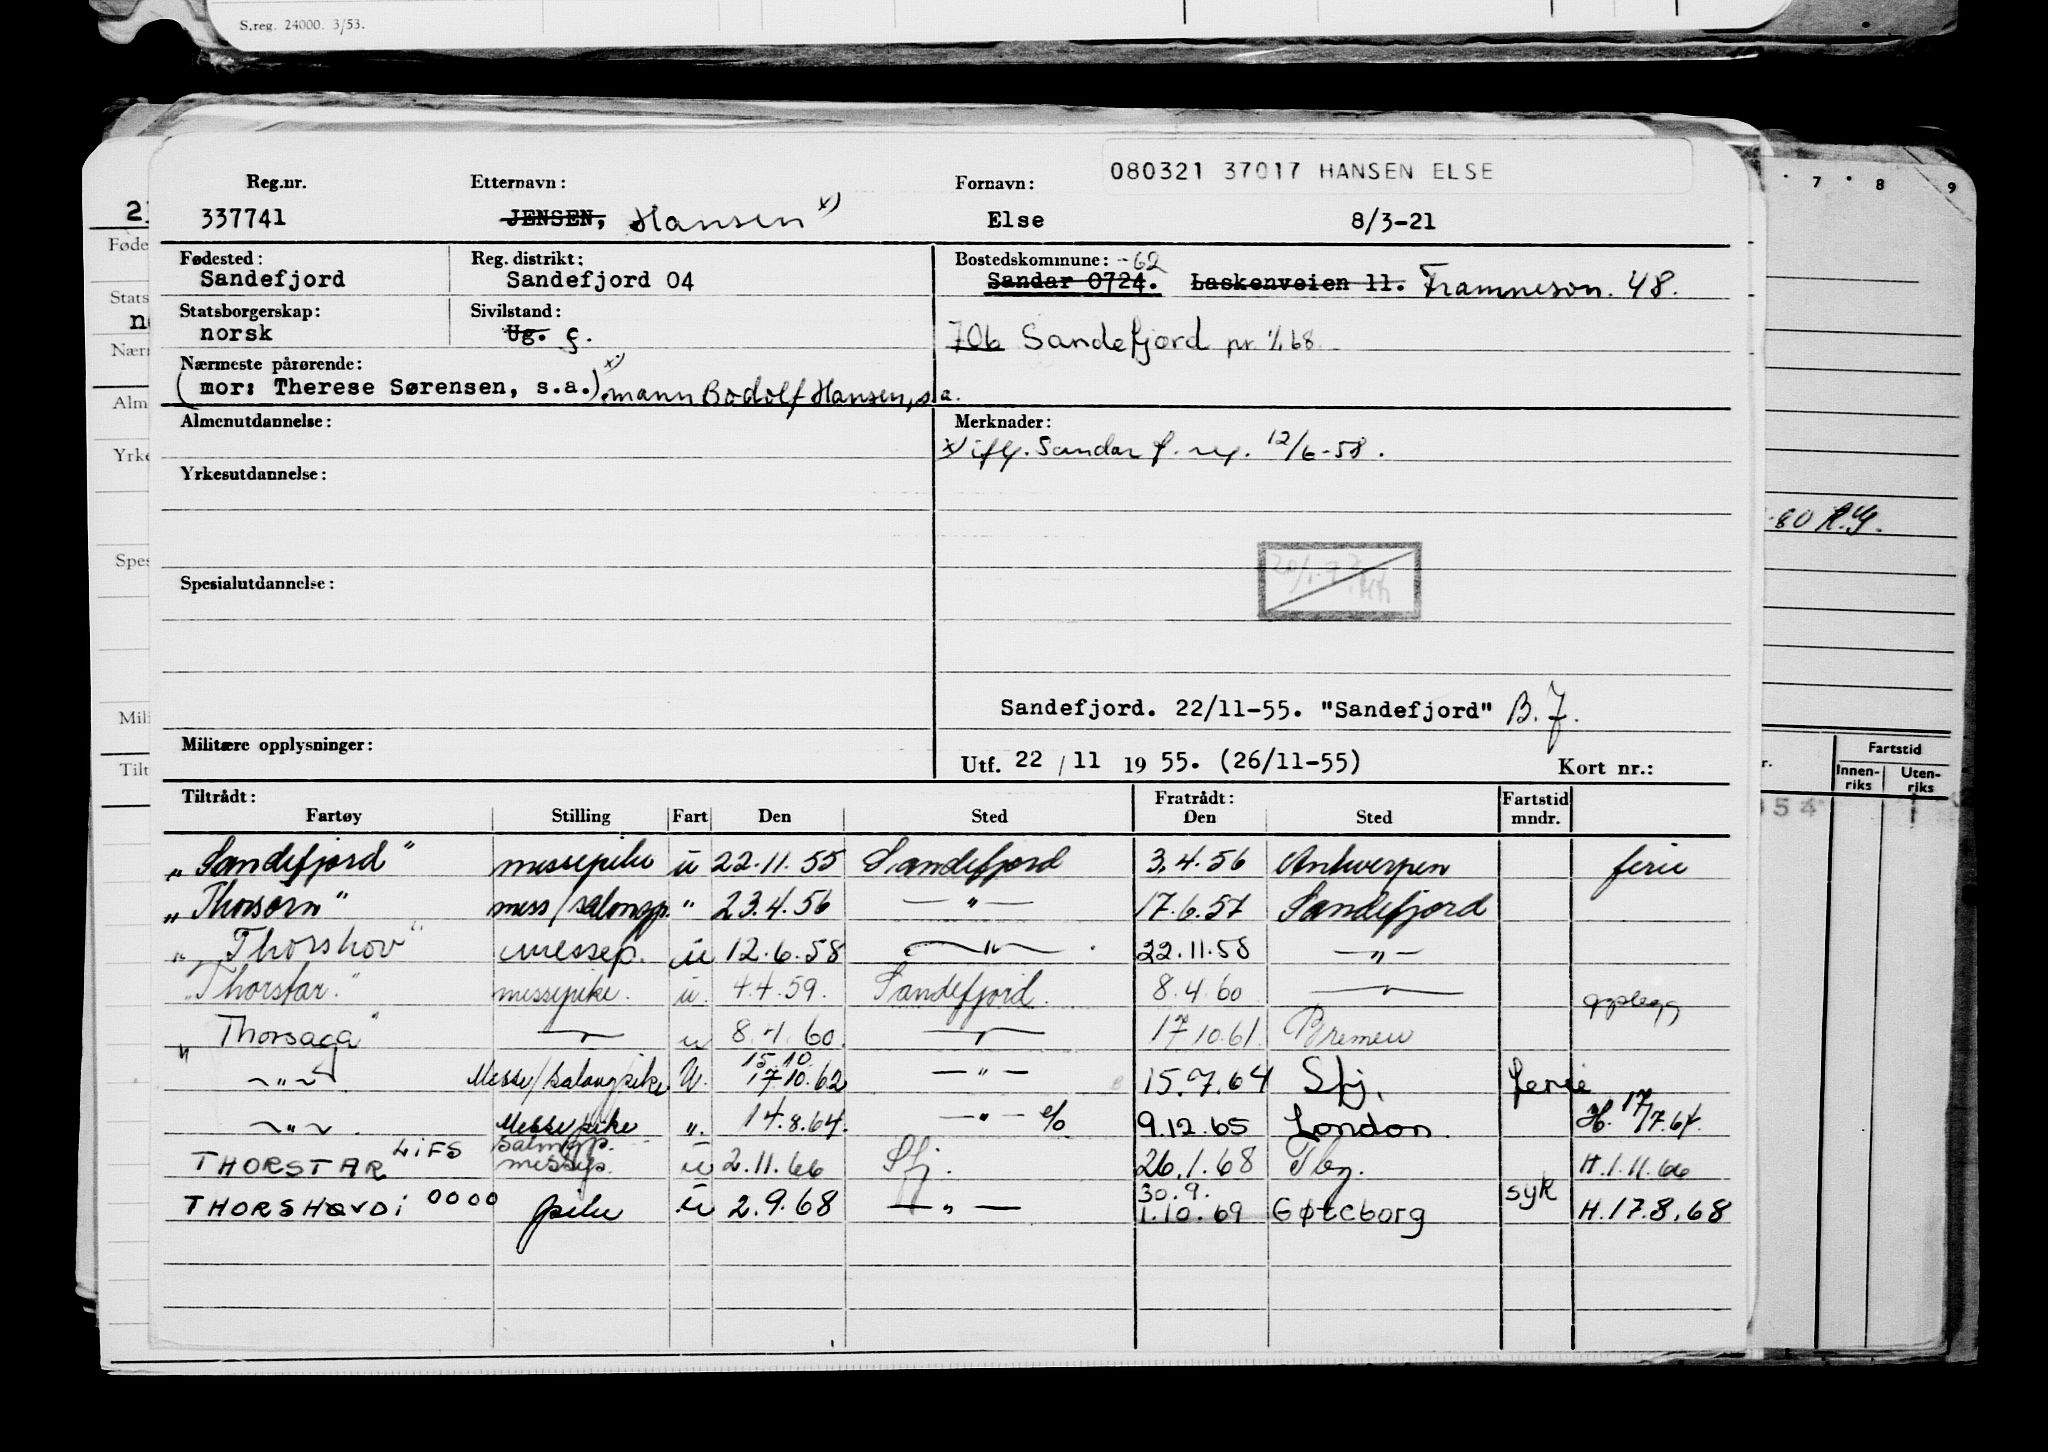 S.reg. 24000. 3/53.
080321 37017 HANSEN ELSE
Reg.nr. Etternavn: Fornavn:
337741 JENSEN, Hansen x) Else 8/3-21
Fødested: Reg. distrikt: Bostedskommune: -62
Sandefjord Sandefjord 04 Sandar 0724. Laskenveien 11. Framnesvn. 48.
Statsborgerskap: Sivilstand:
norsk Ug. g. 706 Sandefjord pr. 1/1 68
Nærmeste pårørende: x)
(mor: Therese Sørensen, s.a.) mann Bodolf Hansen, s.a.
Almenutdannelse: Merknader:
x) iflg. Sandar f. reg. 12/6-58.
Yrkesutdannelse:
Spesialutdannelse:
Sandefjord. 22/11-55. "Sandefjord" B.J.
Militære opplysninger: Utf. 22 / 11 19 55. (26/11-55) Kort nr.:
Tiltrådt: Fratrådt: Fartstid
Fartøy Stilling Fart Den Sted Den Sted mndr.
"Sandefjord" messepike u 22.11.55 Sandefjord 3.4.56 Antwerpen ferie
"Thorsørn" mess/salongp. " 23.4.56 — " — 17.6.57 Sandefjord
"Thorshov" messep. u 12.6.58 — " — 22.11.58 — " —
"Thorstar." messepike. u. 4.4.59. Sandefjord. 8.4.60 — " — opplegg
"Thorsaga" — " — u 8.4.60. — " — 17.10.61. Bremen
15.10
— " — Messe/salongpike U. 17.10.62 — " — 15.7.64 Sfj. ferie
— " — Messepike ". 14.8.64. — " — e/o 9.12.65 London H. 17/7.64.
THORSTAR LIFS salongp. messep. u 2.11.66 Sfj. 26.1.68 Tbg. H.1.11.66
30.9.
THORSHØVDI 0000 pike u 2.9.68 — " — 1.10.69 Gøteborg syk H.17.8.68
7 8 9
Fartstid
Innen-riks Uten-riks